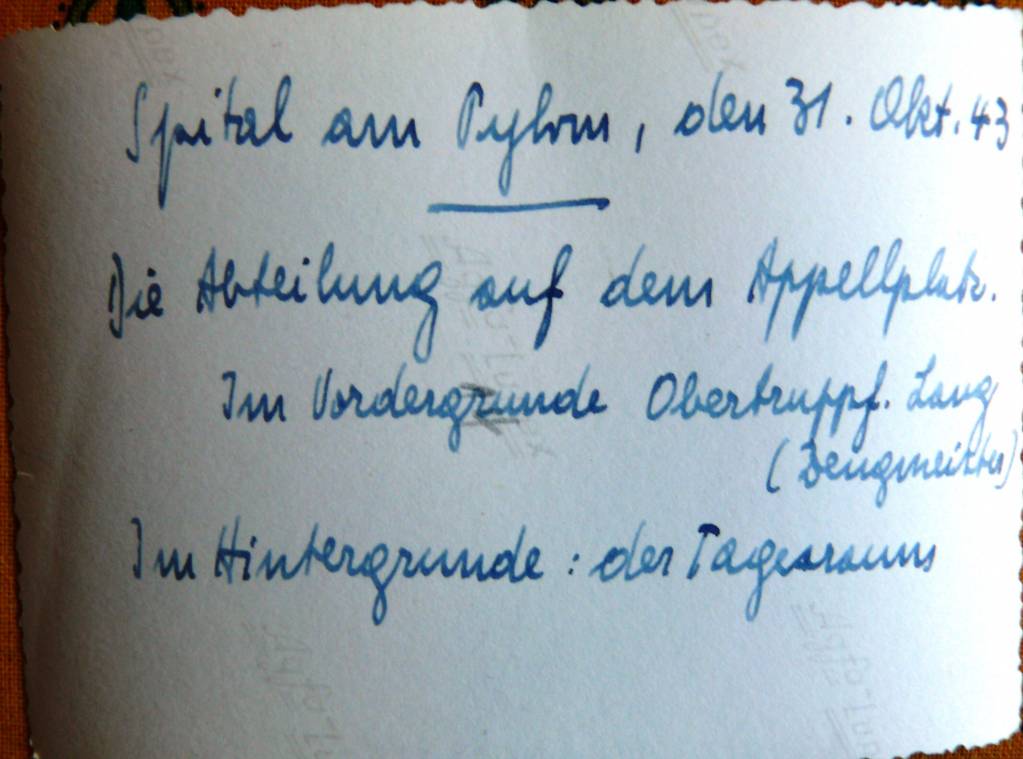 Spital am Pyhrn, den 31. Okt. 43
Die Abteilung auf dem Appellplatz.
Im Vordergrunde Obertruppf. Lang
(Zeugmeister)
Im Hintergrunde: der Tagesraum
Agfa-Lupex
Agfa-Lupex
Agfa-Lupex